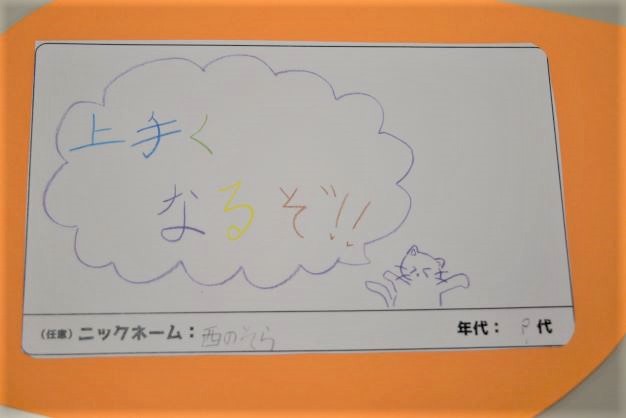 上手く
なるぞ!!
(任意)ニックネーム：西のそら
年代：?代